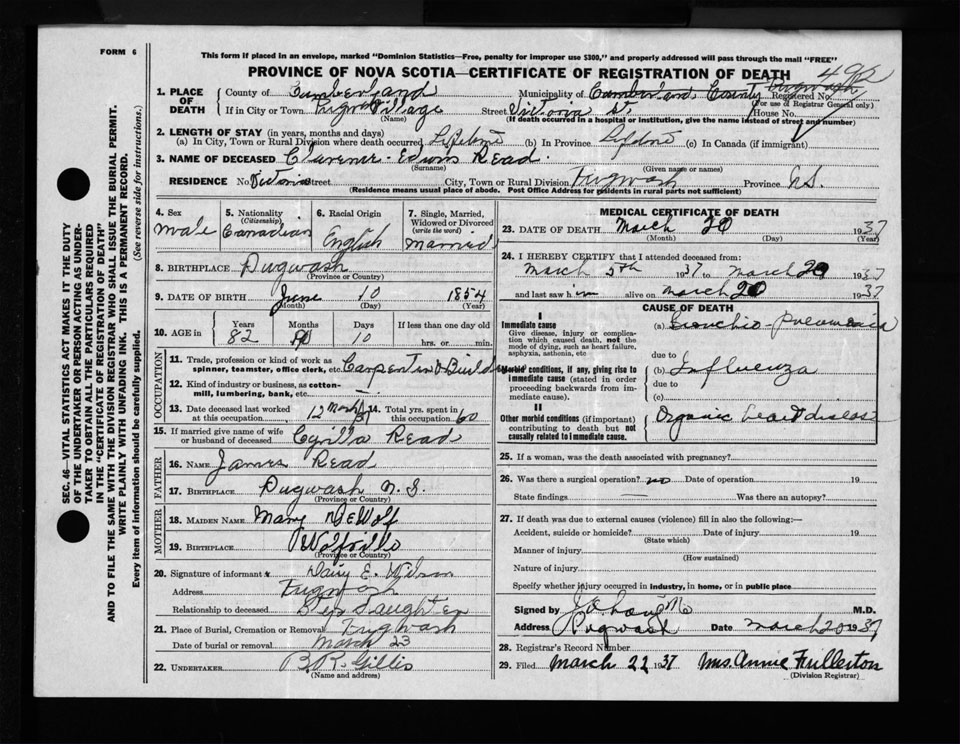 FORM 6
This form if placed in an envelope, marked "Dominion Statistics—Free, penalty for improper use $300," and properly addressed will pass through the mail "FREE"
PROVINCE OF NOVA SCOTIA—CERTIFICATE OF REGISTRATION OF DEATH 492
SEC. 46—VITAL STATISTICS ACT MAKES IT THE DUTY
OF THE UNDERTAKER OR PERSON ACTING AS UNDER-
TAKER TO OBTAIN ALL THE PARTICULARS REQUIRED
IN THE "CERTIFICATE OF REGISTRATION OF DEATH"
AND TO FILE THE SAME WITH THE DIVISION REGISTRAR WHO SHALL ISSUE THE BURIAL PERMIT.
WRITE PLAINLY WITH UNFADING INK. THIS IS A PERMANENT RECORD.
Every item of information should be carefully supplied. (See reverse side for instructions.)
1. PLACE OF DEATH
County of Cumberland Municipality of Cumberland County Registered No. Pugwash
(For use of Registrar General only)
If in City or Town Pugwash Village Street Victoria St House No.
(Name) (If death occurred in a hospital or institution, give the name instead of street and number)
2. LENGTH OF STAY (in years, months and days)
(a) In City, Town or Rural Division where death occurred Lifetime (b) In Province Lifetime (c) In Canada (if immigrant)
3. NAME OF DECEASED Clarence Edwin Read
(Surname) (Given name or names)
RESIDENCE No. Victoria street City, Town or Rural Division Pugwash Province N.S.
(Residence means usual place of abode. Post Office Address for residents in rural parts not sufficient)
4. Sex male
5. Nationality (Citizenship) Canadian
6. Racial Origin English
7. Single, Married, Widowed or Divorced (write the word) Married
8. BIRTHPLACE Pugwash
(Province or Country)
9. DATE OF BIRTH June 10 1854
(Month) (Day) (Year)
10. AGE in Years 82 Months Days 10 If less than one day old hrs. or min.
OCCUPATION
11. Trade, profession or kind of work as spinner, teamster, office clerk, etc. Carpenter & Builder
12. Kind of industry or business, as cotton-mill, lumbering, bank, etc.
13. Date deceased last worked at this occupation 12 March 37 14. Total yrs. spent in this occupation 60
15. If married give name of wife or husband of deceased Cyrilla Read
FATHER
16. NAME James Read
17. BIRTHPLACE Pugwash N.S.
(Province or Country)
MOTHER
18. MAIDEN NAME Mary DeWolf
19. BIRTHPLACE Wolfville
(Province or Country)
20. Signature of informant Daisy E. Wilson
Address Pugwash
Relationship to deceased Step Daughter
21. Place of Burial, Cremation or Removal Pugwash
Date of burial or removal March 23
22. UNDERTAKER B.R. Gillis
(Name and address)
MEDICAL CERTIFICATE OF DEATH
23. DATE OF DEATH March 20 1937
(Month) (Day) (Year)
24. I HEREBY CERTIFY that I attended deceased from:
March 5th 1937 to March 20 1937
and last saw him alive on March 20 1937
CAUSE OF DEATH
I
Immediate cause
Give disease, injury or complication which caused death, not the mode of dying, such as heart failure, asphyxia, asthenia, etc
(a) Bronchio-Pneumonia
due to
Morbid conditions, if any, giving rise to immediate cause (stated in order proceeding backwards from immediate cause).
(b) Influenza
due to
(c)
II
Other morbid conditions (if important) contributing to death but not causally related to immediate cause.
Organic heart disease
25. If a woman, was the death associated with pregnancy?
26. Was there a surgical operation? no Date of operation 19
State findings — Was there an autopsy?
27. If death was due to external causes (violence) fill in also the following:—
Accident, suicide or homicide? Date of injury 19
(State which)
Manner of injury
(How sustained)
Nature of injury
Specify whether injury occurred in industry, in home, or in public place
Signed by M.D.
Address Pugwash Date March 20 1937
28. Registrar's Record Number
29. Filed March 22 1937 Mrs. Annie Fullerton
(Division Registrar)